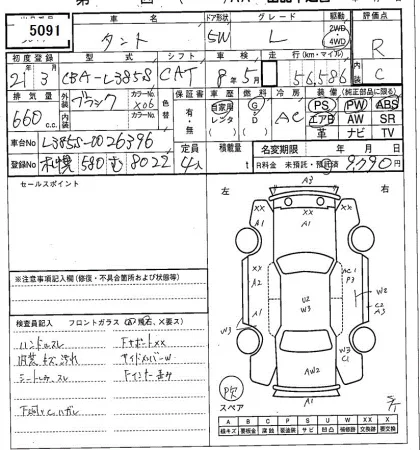 5091
車名 ドア形状 グレード 駆動 評価点
タント 5W L 2WD 4WD R
初度登録 型式 シフト 車検 走行(km・マイル) 内装
21 3 CBA-L385S CAT 8 5 56,586 C
排気量 外装 ブラック カラーNo X06 色替 保証書 車歴 燃料 冷房 装備(純正部品に限)
660 c.c. 内装 カラーNo 有・無 自家用 レンタ G D AC PS PW ABS
エアB AW SR
革 ナビ TV
車台No L385S-0026396 定員 積載量 名変期限 年 月 日
登録No 札幌 580 む 8022 4人 t R料金 未預託・預託済 9,790
セールスポイント
左 右
A3
XX XX
A1 A1
XX XX
A2 AC1 P3
W2
U2 W3
C2 A3
A1
W3 W3
C1
AW2
A1
※注意事項記入欄(修復・不具合箇所および状態等)
検査員記入 フロントガラス
ハンドルスレ FサポートXX
内装キズ汚れ サイドメンバーW
シートコゲ、スレ Fインナー
スペア
A B C P S U W X XX
線キズ 要板金 腐蝕 要塗装 サビ 凹凸 補修跡 要交換 交換跡